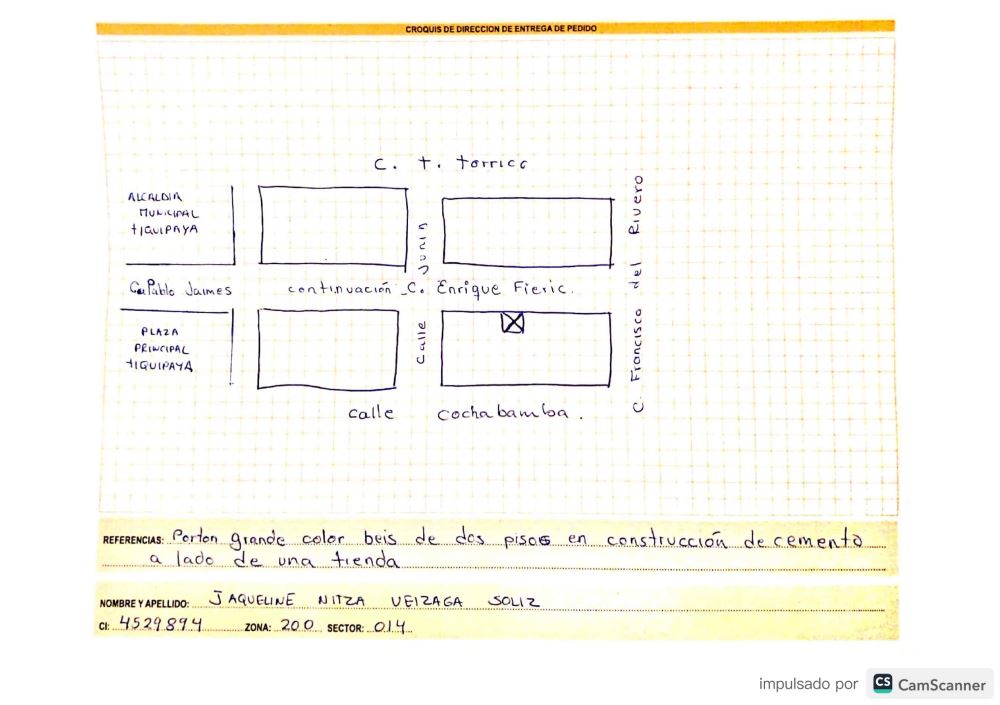 CROQUIS DE DIRECCION DE ENTREGA DE PEDIDO
C. T. Torrico
ALCALDIA
MUNICIPAL
TIQUIPAYA
Calle Junin
C. Francisco del Rivero
Ca. Pablo Jaimes
continuación C. Enrique Fieric.
PLAZA
PRINCIPAL
TIQUIPAYA
calle cochabamba.
REFERENCIAS: Porton grande color beis de dos pisos en construcción de cemento
a lado de una tienda
NOMBRE Y APELLIDO: JAQUELINE NITZA VEIZAGA SOLIZ
CI: 4529894 ZONA: 200 SECTOR: 014
impulsado por CS CamScanner